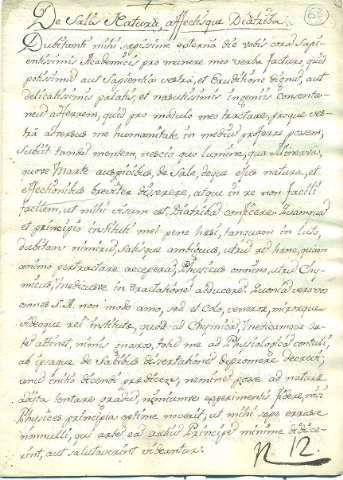 De Salis Natura, affectisque Diatriba
63
Dubitanti mihi sepissime externa die vobis cora Sapi-
entissimis Academicis pro munere mei verba facturo, quid
potissimu aut Sapientia vestra, et Eruditione dignu, aut
delicatissimis palatis, et nasutissimis ingenijs consenta-
neu afferrem, quid pro modulo meo tractare, proque ves-
trâ adversus me humanitate in mediu proferre possem,
Subijt tandem mentem, nescio quo lumine, qua Minerva,
quove Marte auspicibus, de Sale, deque ejus natura, et
affectionibus breviter disserere, atque in re non facili
facilem, ut mihi visum est, Diatriba conficere. Quamquā
et principio instituti mei pene hesi, tanquam in luto,
dubitans nimirū, satisque ambiguus, utrū rē hanc, quam
animo pertractare acceperā, Physicus omnino, utrū Chy-
micus, Medicusve in tractatione adducerē. Quoniā vero vos
omnes S.M. non modo amo, sed et colo, veneror, mirorque
videoque rei institute, quod ad Chymica, Medicamque ar-
te attinet, minus gnaros, totū me ad Physiologiā contuli,
ab ipsaque de Salibus dissertationē depromere decrevi,
unū enim dicenti predicere, neminē posse ad nature
adita tentare gradū, neminemve experimentis fidere, nisi
Physices principia optime noverit, ut mihi sepe errasse
nonnulli, qui artē eā absque Principijs minime didice-
rint, aut salutaverint videantur.
N 12.